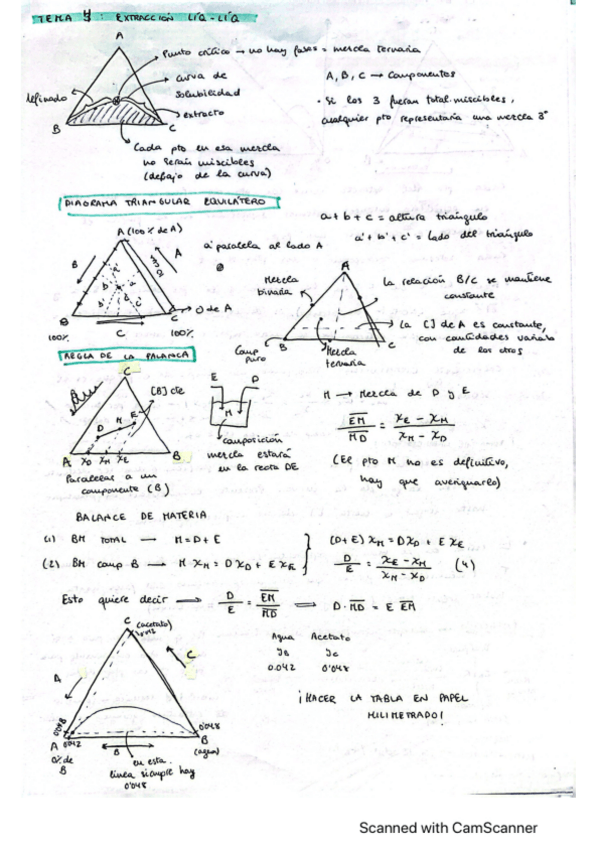 TEMA 4 : EXTRACCIÓN LÍQ - LÍQ
A
Punto crítico → no hay fases = mezcla ternaria
curva de solubilidad
A, B, C → Componentes
refinado
extracto
B
C
• Si los 3 fueran total. miscibles, cualquier pto representaría una mezcla 3ª
Cada pto en esa mezcla
no serán miscibles
(debajo de la curva)
DIAGRAMA TRIANGULAR EQUILÁTERO
a + b + c = altura triángulo
a' + b' + c' = lado del triángulo
A (100% de A)
a' paralela al lado A
B
A
a'
b'
c'
B
C
0 de A
100%
C
100%
A
Mezcla binaria
La relación B/c se mantiene constante
La [] de A es constante, con cantidades variab de los otros
B
C
Comp puro
Mezcla ternaria
REGLA DE LA PALANCA
C
[B] cte
E
D
M
D
M
E
A
xD
xM
xE
B
Paralelas a un
componente (B)
composición
mezcla estará
en la recta DE
M → Mezcla de D y E
EM / MD = xE - xM / xM - xD
(El pto M no es definitivo,
hay que averiguarlo)
BALANCE DE MATERIA
(1) BM TOTAL → M = D + E
(2) BM comp B → M xM = D xD + E xE
(D+E) xM = D xD + E xE
D / E = xE - xM / xM - xD (4)
Esto quiere decir → D / E = EM / MD ⇒ D · MD = E EM
C (acetato)
C
A
Agua Acetato
yB yC
0.042 0'048
¡HACER LA TABLA EN PAPEL
MILIMETRADO!
0'048
A
0'042
0% de B
B
0'048
B
(agua)
en esta
línea siempre hay
0'048
Scanned with CamScanner